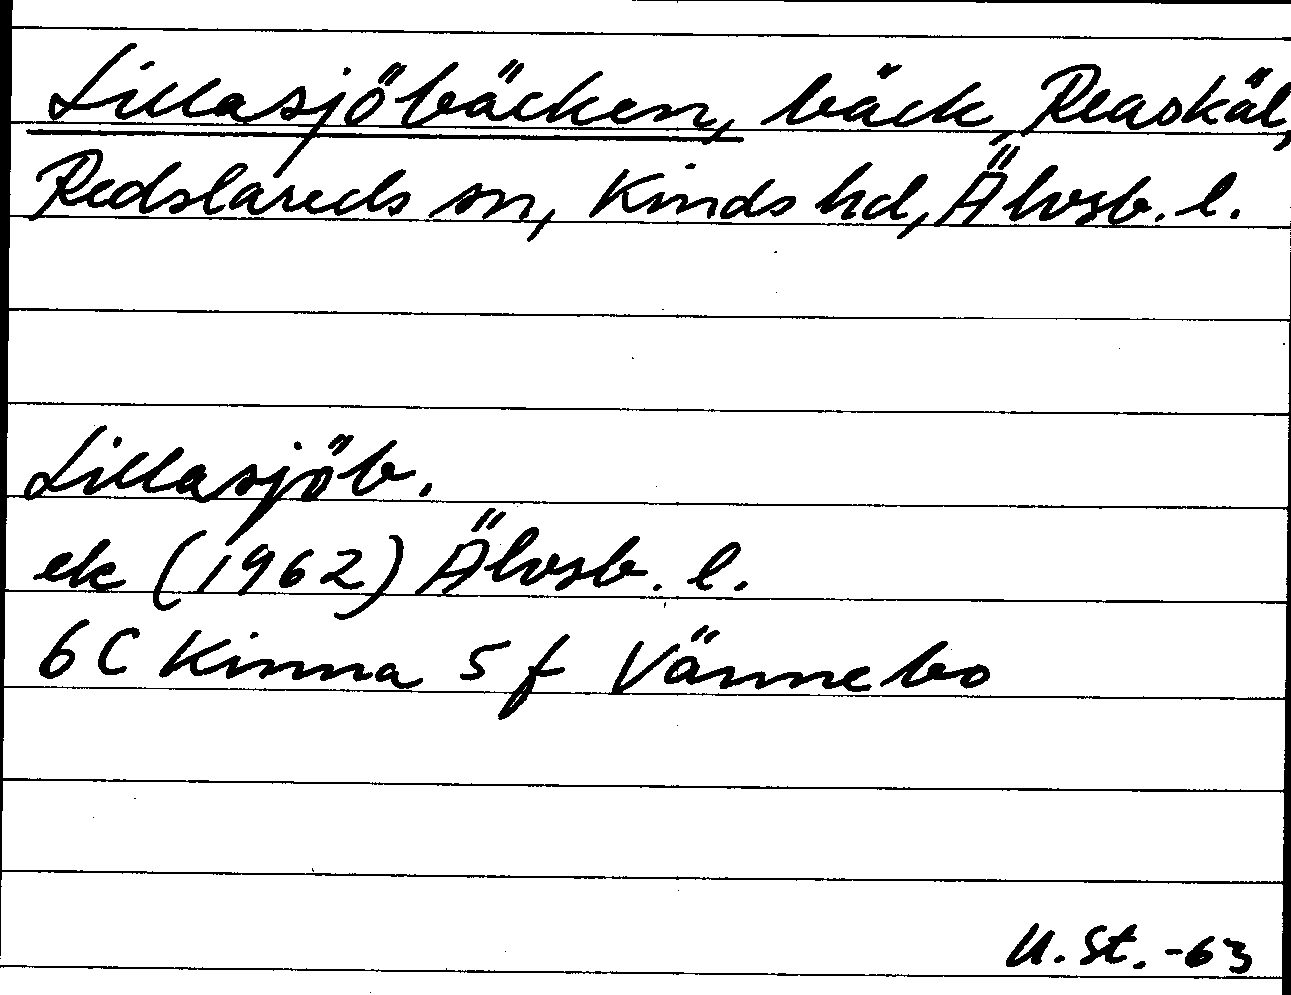 Lillasjöbäcken, bäck, Reaskäl,
Redslareds sn, Kinds hd, Älvsb. l.
Lillasjöb.
ek (1962) Älvsb. l.
6 C Kinna 5 f Vännebo
U. St. -63